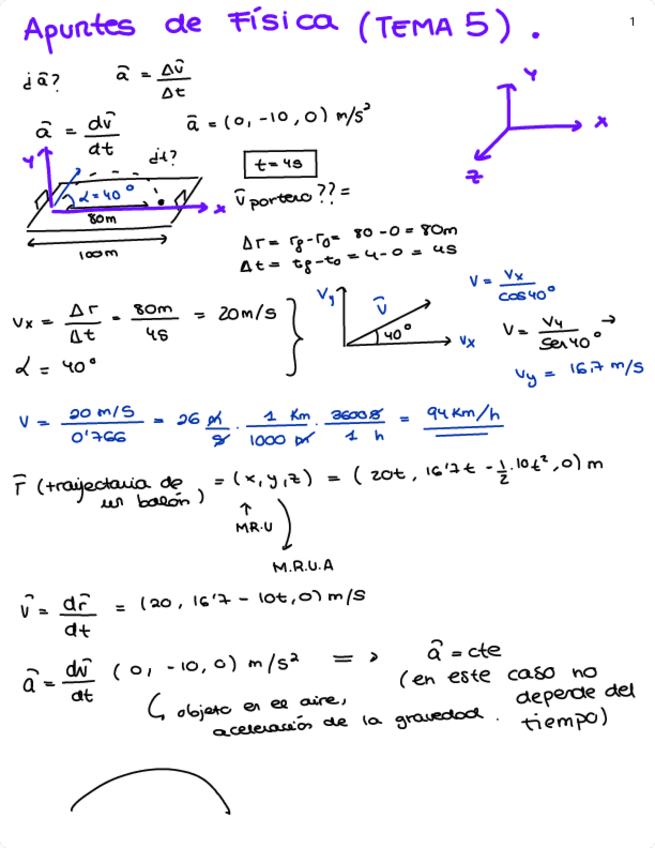 Apuntes de Física (TEMA 5).
1
¿a⃗? a⃗ = Δv⃗/Δt
a⃗ = dv⃗/dt a⃗ = (0, -10, 0) m/s²
Y X Z
¿t? t = 4s
Y α = 40° X
80m
100m
v⃗ portero ?? =
Δr = rf - r0 = 80 - 0 = 80m
Δt = tf - t0 = 4 - 0 = 4s
Vx = Δr/Δt = 80m/4s = 20m/s
α = 40°
Vy v⃗ 40° Vx
V = Vx/cos40°
V = Vy/sen40° →
Vy = 16,7 m/s
V = 20 m/s / 0'766 = 26 m/s · 1 Km/1000 m · 3600s/1 h = 94 Km/h
r⃗ (trayectoria de un balón) = (x, y, z) = (20t, 16'7t - 1/2·10t², 0) m
↑
MR.U
M.R.U.A
v⃗ = dr⃗/dt = (20, 16'7 - 10t, 0) m/s
a⃗ = dv⃗/dt (0, -10, 0) m/s² => a⃗ = cte
(en este caso no
depende del
tiempo)
objeto en el aire,
aceleración de la gravedad.